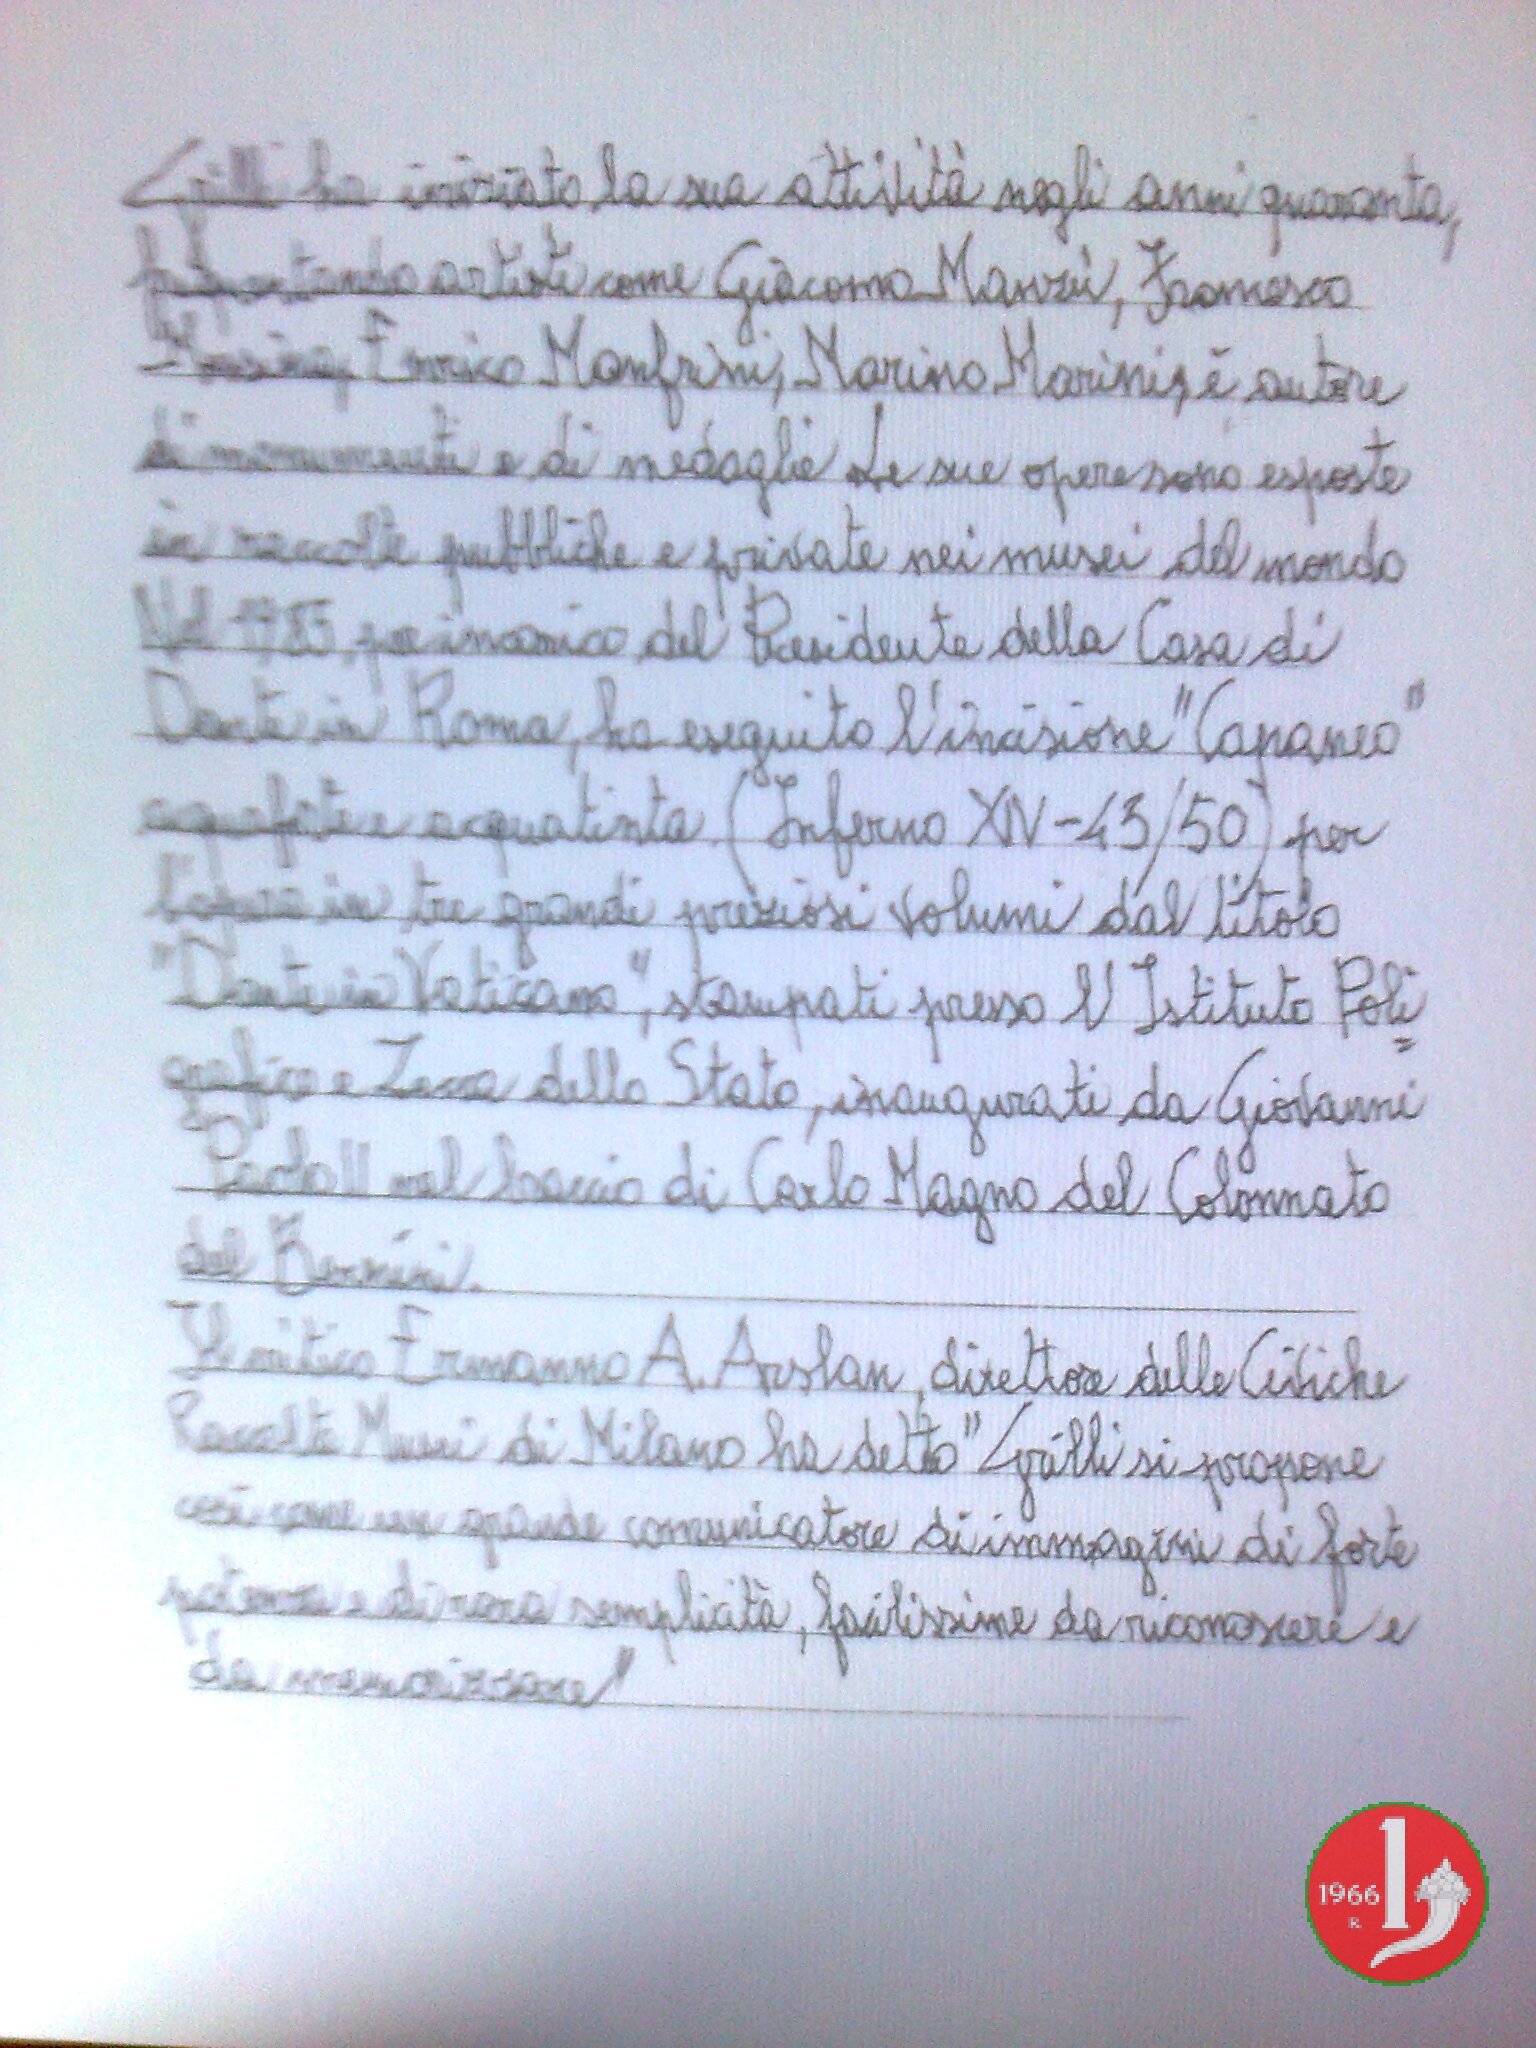 Grilli ha iniziato la sua attività negli anni quaranta,
frequentando artisti come Giacomo Manzù, Francesco
Messina, Enrico Manfrini, Marino Marini, è autore
di monumenti e di medaglie Le sue opere sono esposte
in raccolte pubbliche e private nei musei del mondo
Nel per incarico del Presidente della Casa di
Dante in Roma, ha eseguito l'incisione "Capaneo"
acquaforte e acquatinta (Inferno XIV-43/50) per
l'opera in tre grandi preziosi volumi dal titolo
"Dante in Vaticano", stampati presso l'Istituto Poli=
grafico e Zecca dello Stato, inaugurati da Giovanni
Paolo II nel braccio di Carlo Magno del Colonnato
del Bernini.
Il critico Ermanno A. Arslan, direttore delle Civiche
Raccolte Musei di Milano ha detto "Grilli si propone
così come un grande comunicatore di immagini di forte
potenza e di rara semplicità, facilissime da riconoscere e
da memorizzare"
1966
R